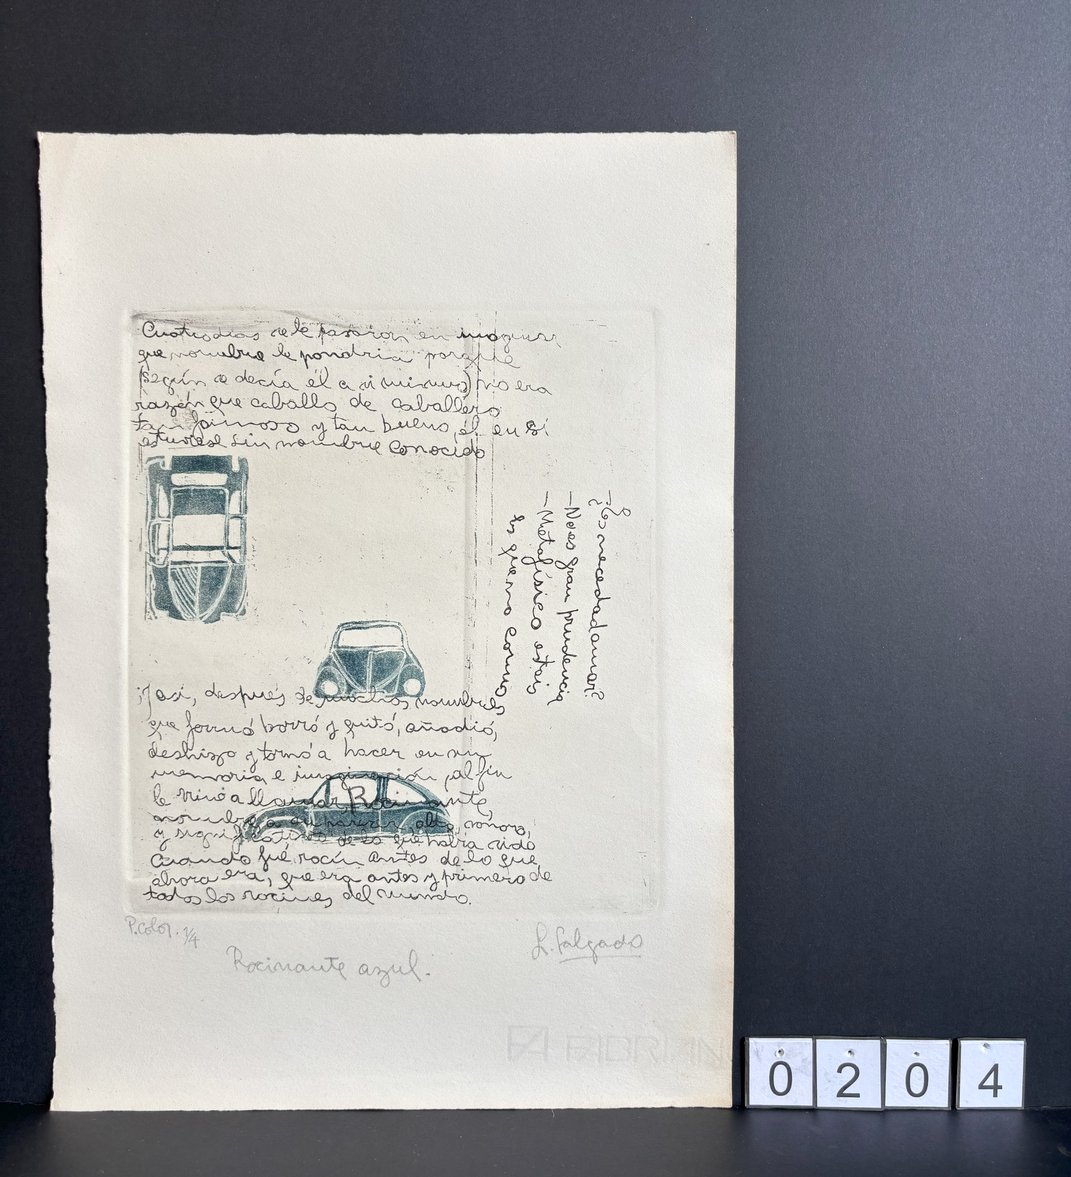 Cuatro dias se le pasaron en imaginar
que nombre le pondria porque
(según se decía él a si mismo) no era
razón que caballo de caballero
tan famoso y tan bueno, él en sí
estuviese sin nombre conocido
-¿Es necedad amar?
-No es gran prudencia
-Metafísico estais
Es que no como
¡Y asi, después de muchos nombres
que formó borró y quitó, añadió,
deshizo y tornó a hacer en su
memoria e imaginación, al fin
le vino a llamar Rocinante,
R
nombre a su parecer, alto, sonoro,
y significativo de lo que había sido
Cuando fué rocín antes de lo que
ahora era, que era antes y primero de
todos los rocines del mundo.
P.color. 1/4
L. Salgado
Rocinante azul.
FABRIANO
0 2 0 4